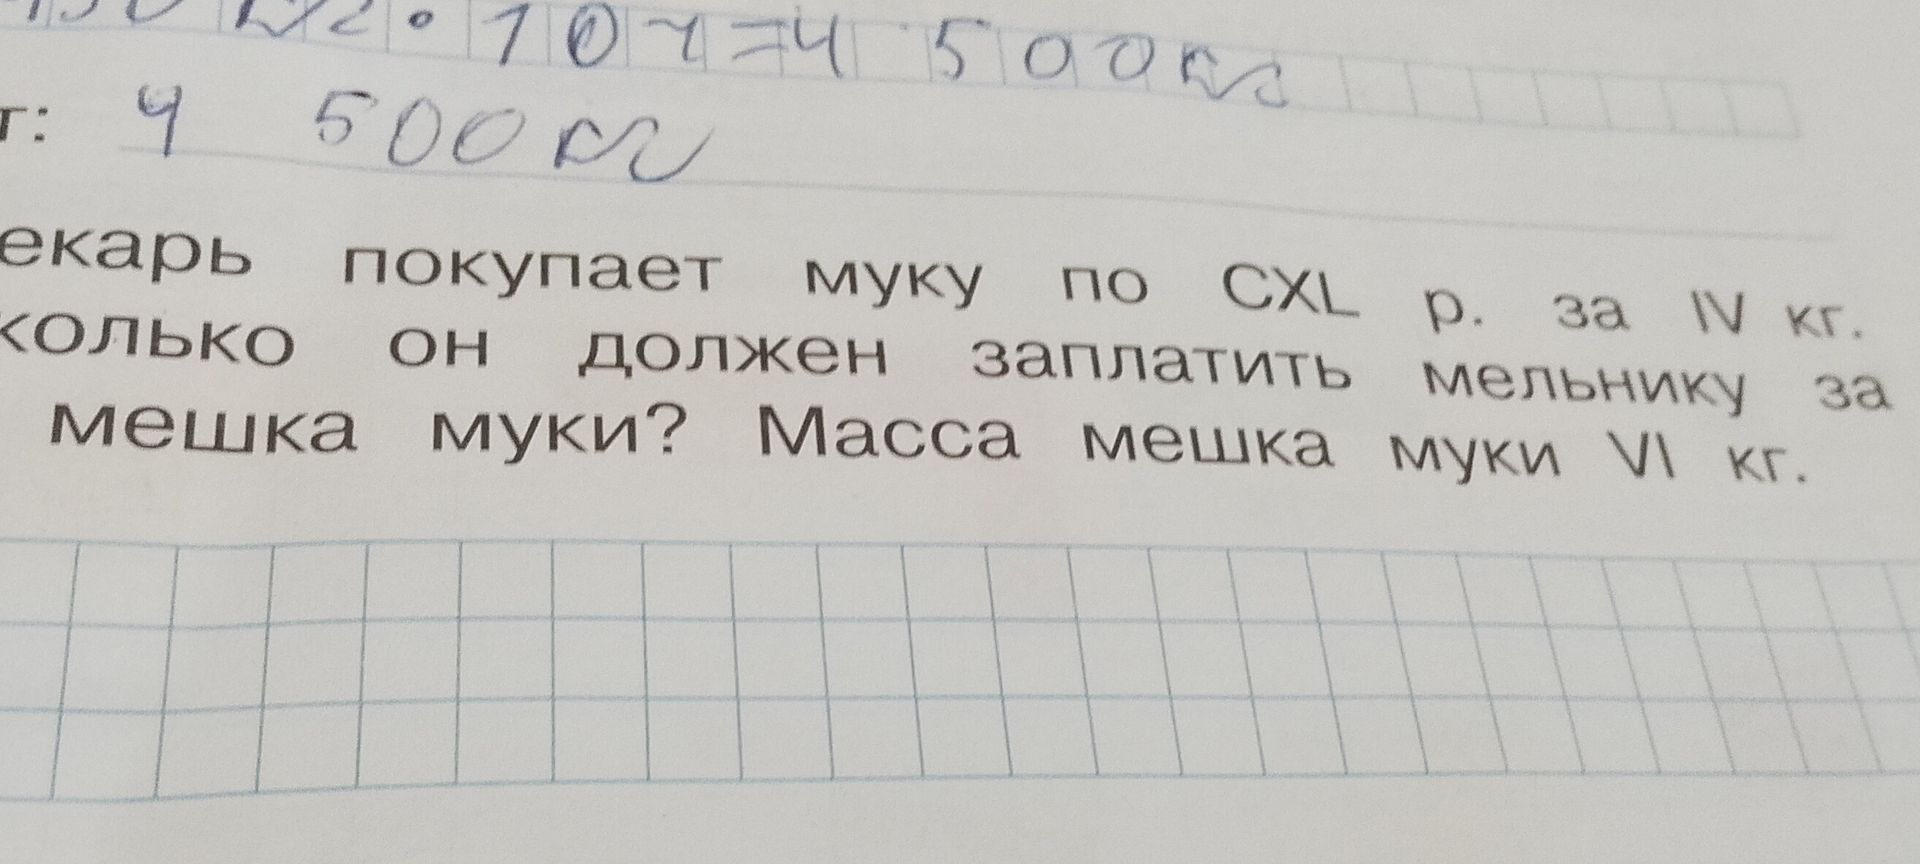 · 10 ч = 4 500 кг
т: 4 500 кг
екарь покупает муку по CXL р. за IV кг.
колько он должен заплатить мельнику за
мешка муки? Масса мешка муки VI кг.